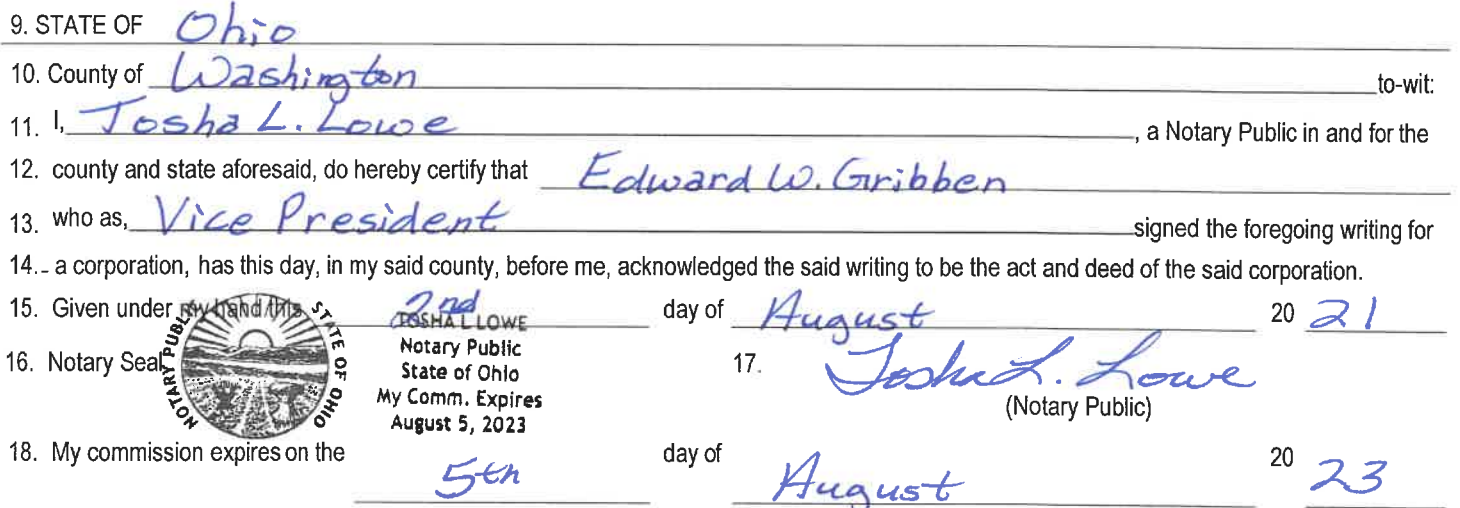 9. STATE OF Ohio
10. County of Washington to-wit:
11. I, Tosha L. Lowe, a Notary Public in and for the
12. county and state aforesaid, do hereby certify that Edward W. Gribben
13. who as, Vice President signed the foregoing writing for
14. a corporation, has this day, in my said county, before me, acknowledged the said writing to be the act and deed of the said corporation.
15. Given under my hand this 2nd day of August 20 21
16. Notary Seal
NOTARY PUBLIC STATE OF OHIO
TOSHA L LOWE
Notary Public
State of Ohio
My Comm. Expires
August 5, 2023
17. Tosha L. Lowe
(Notary Public)
18. My commission expires on the 5th day of August 20 23